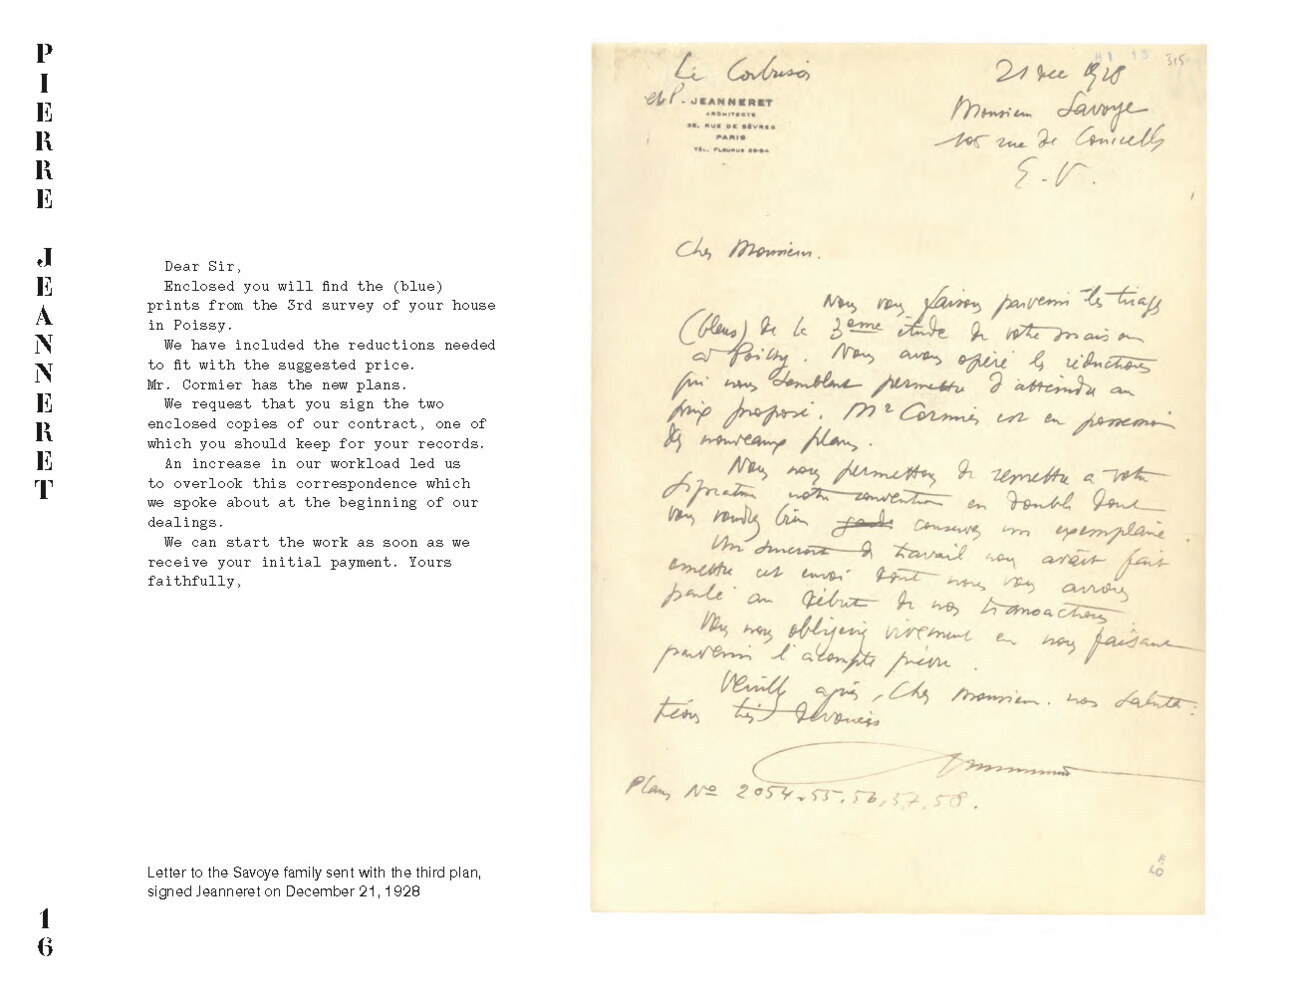 PIERRE JEANNERET
Dear Sir,
Enclosed you will find the (blue)
prints from the 3rd survey of your house
in Poissy.
We have included the reductions needed
to fit with the suggested price.
Mr. Cormier has the new plans.
We request that you sign the two
enclosed copies of our contract, one of
which you should keep for your records.
An increase in our workload led us
to overlook this correspondence which
we spoke about at the beginning of our
dealings.
We can start the work as soon as we
receive your initial payment. Yours
faithfully,
Letter to the Savoye family sent with the third plan,
signed Jeanneret on December 21, 1928
16
Le Corbusier
et P. JEANNERET
ARCHITECTE
35, RUE DE SÈVRES
PARIS
TÉL. FLEURUS
21 dec 1928
315
Monsieur Savoye
105 rue de Courcelles
E.V.
Cher Monsieur.
Nous vous faisons parvenir les tirages
(bleus) de la 3ème étude de votre maison
à Poissy. Nous avons opéré les réductions
qui nous semblent permettre d'atteindre au
prix proposé. Mr Cormier est en possession
des nouveaux plans.
Nous nous permettons de remettre a votre
signature notre convention en double dont
vous voudrez bien garder conserver un exemplaire.
Un surcroit de travail nous avait fait
omettre cet envoi dont nous vous avions
parlé au début de nos transactions.
Vous nous obligeriez vivement en nous faisant
parvenir l'acompte prévu.
Veuillez agréer, Cher Monsieur. nos saluta-
tions très dévouées
Plans No 2054.55.56.57.58.